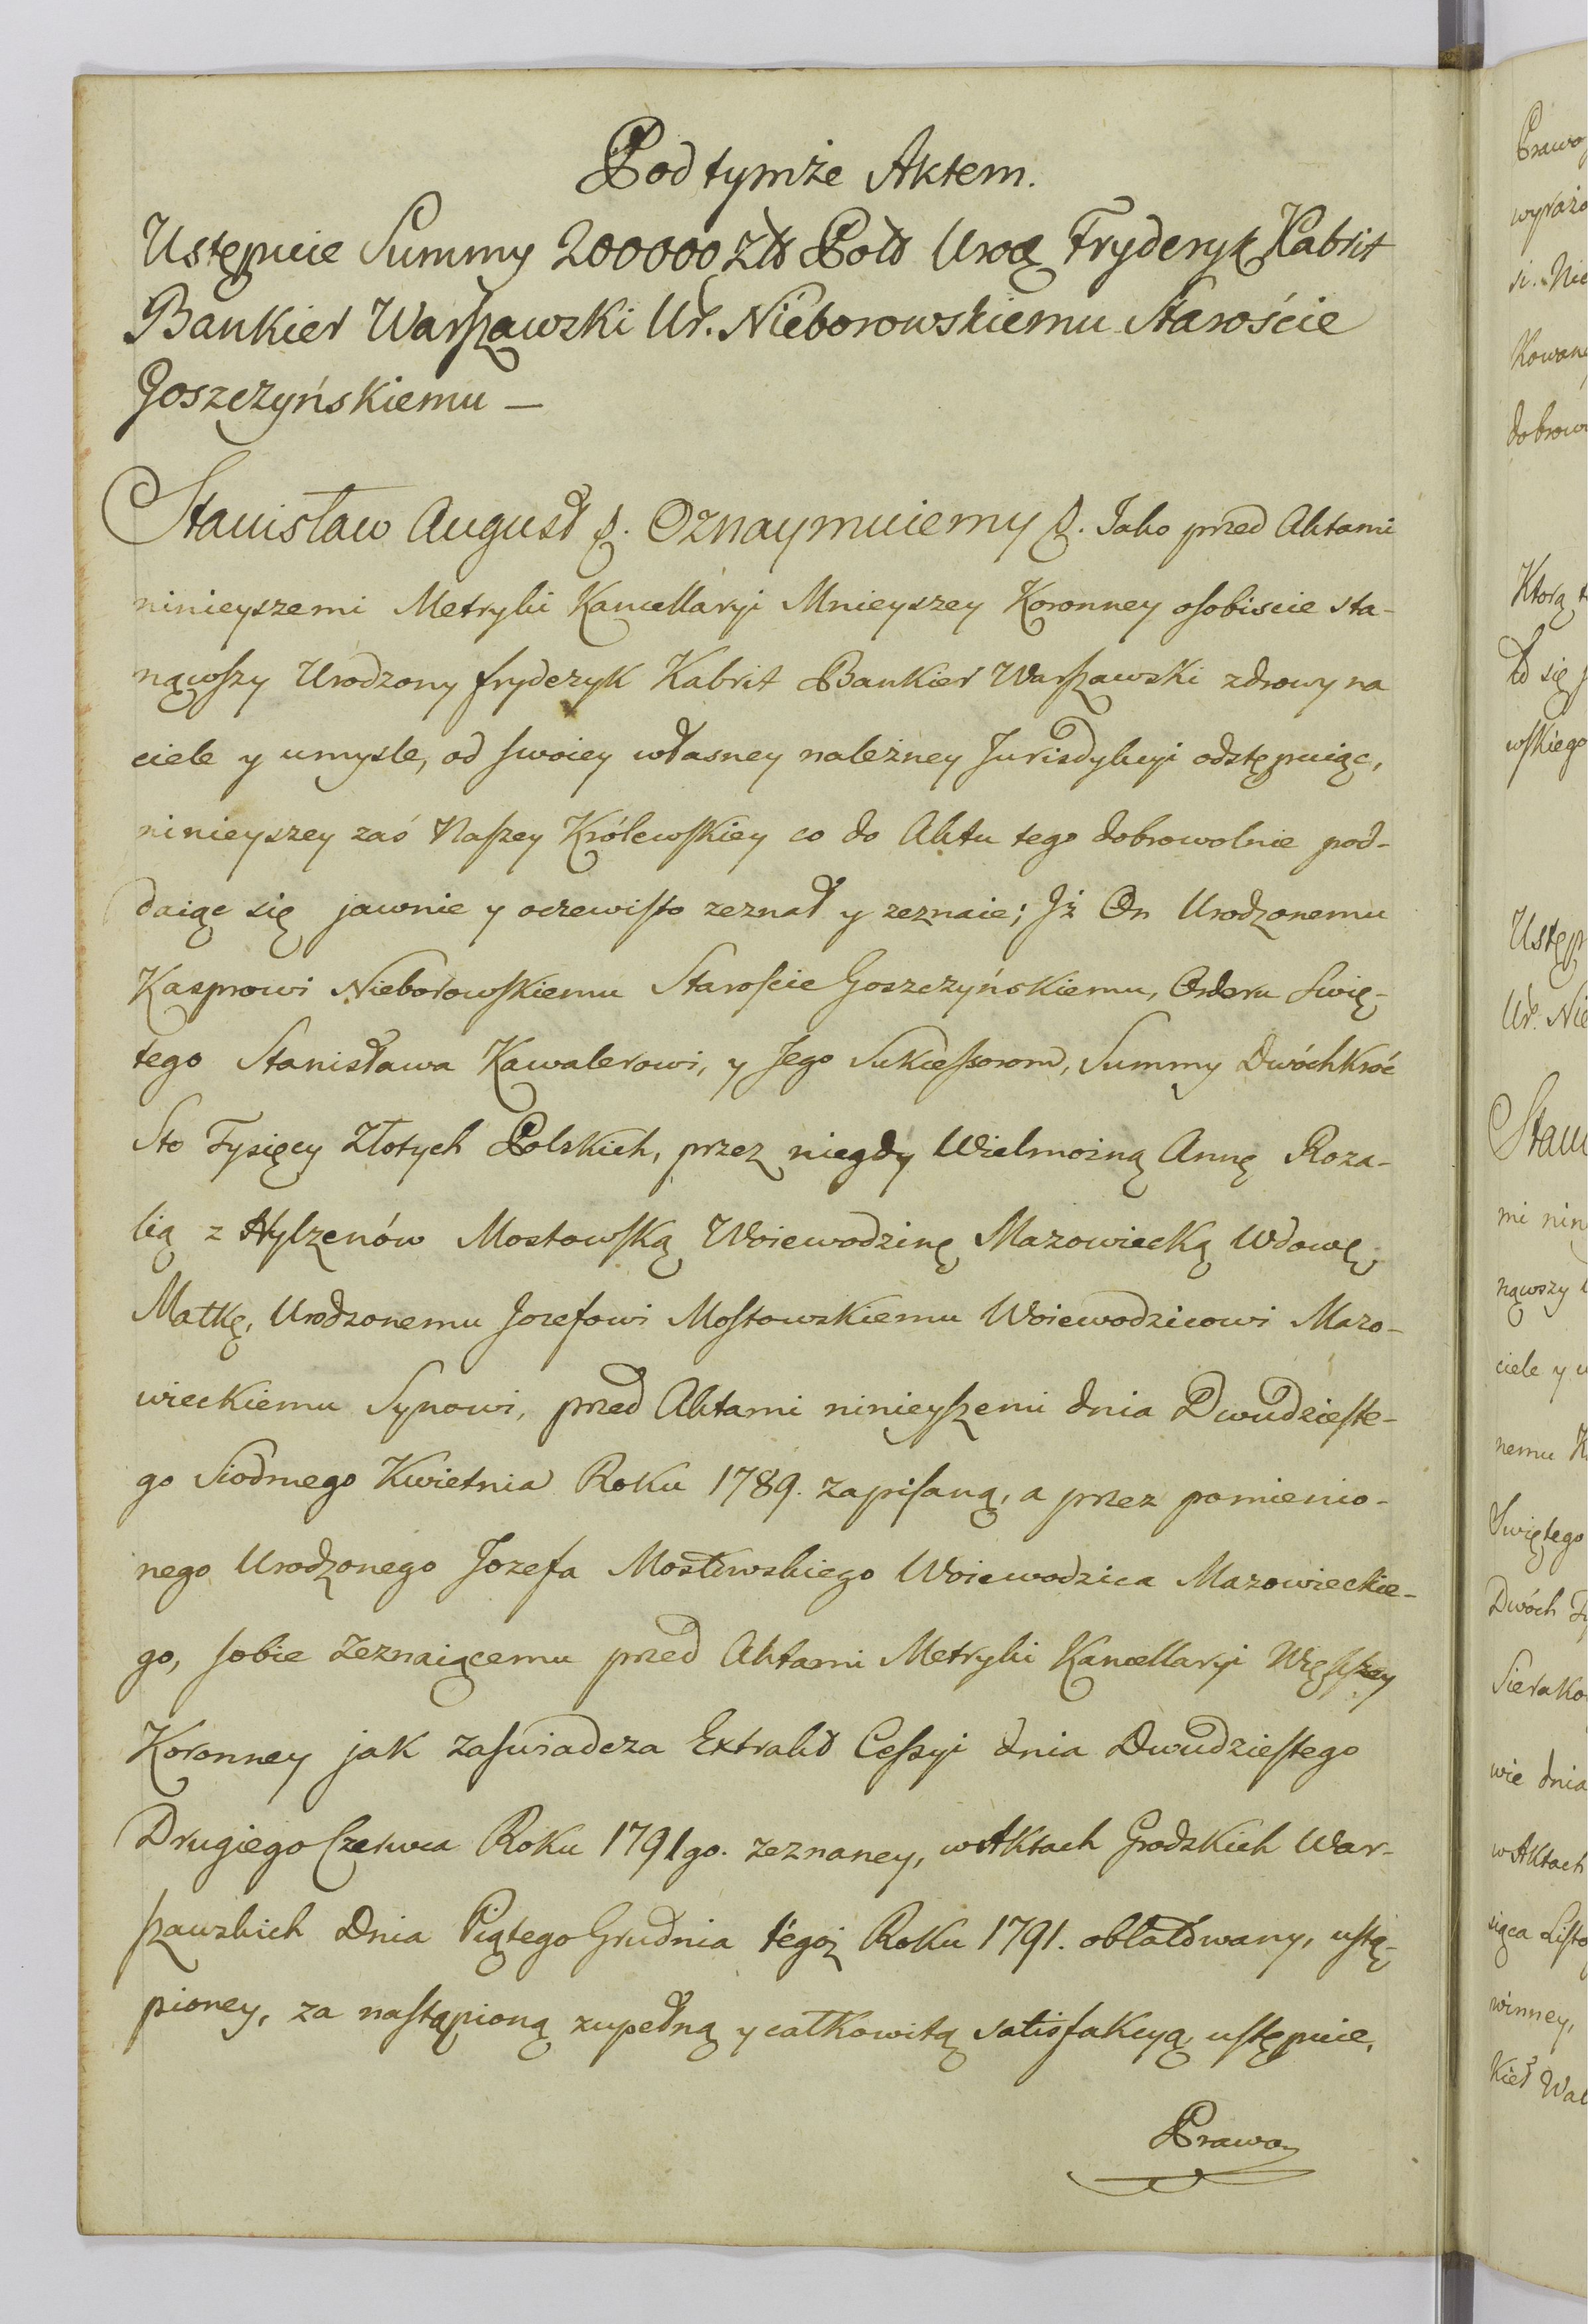 Pod tymże Aktem.
Ustępuie Summy 200000 Zł Pol Uro. Fryderyk Kabrit
Bankier Warszawski Ur. Nieborowskiemu Staroście
Goszczyńskiemu —
Stanisław August &. Oznaymuiemy &. Jako przed Aktami
ninieyszemi Metryki Kancellaryi Mnieyszey Koronney osobiscie sta-
nąwszy Urodzony Fryderyk Kabrit Bankier Warszawski zdrowy na
ciele y umysle, od swoiey własney należney Jurisdykcyi odstępuiąc,
ninieyszey zaś Naszey Królewskiey co do Aktu tego dobrowolnie pod-
daiąc się jawnie y oczewisto zeznał y zeznaie; Jż On Urodzonemu
Kasprowi Nieborowskiemu Staroscie Goszczyńskiemu, Orderu Swię-
tego Stanisława Kawalerowi, y Jego Sukcessorom, Summy Dwóchkroć
Sto Tysięcy Złotych Polskich, przez niegdy Wielmożną Annę Roza-
lią z Hylzenów Mostowską Woiewodzinę Mazowiecką Wdowę,
Matkę, Urodzonemu Jozefowi Mostowskiemu Woiewodzicowi Mazo-
wieckiemu Synowi, przed Aktami ninieyszemi dnia Dwudzieste-
go Siodmego Kwietnia Roku 1789. zapisaną, a przez pomienio-
nego Urodzonego Jozefa Mostowskiego Woiewodzica Mazowieckie-
go, sobie zeznaiącemu przed Aktami Metryki Kancellaryi Większey
Koronney jak zaswiadcza Extrakt Cessyi dnia Dwudziestego
Drugiego Czerwca Roku 1791go. zeznaney, w Aktach Grodzkich War-
szawskich Dnia Piątego Grudnia tegoż Roku 1791. oblatowany, ustą-
pioney, za nastąpioną zupełną y całkowitą satisfakcyą, ustępuie,
Prawo
Prawo
wyrażo
si. Nie
kowan
dobrow
Którą
się
wskiego
Ustęp
Ur. Nie
Stan
mi nin
nąwszy
ciele y u
nemu K
Swiętego
Dwóch
Sierako
wie dnia
w Aktach
siąca Listo
winney,
kier War